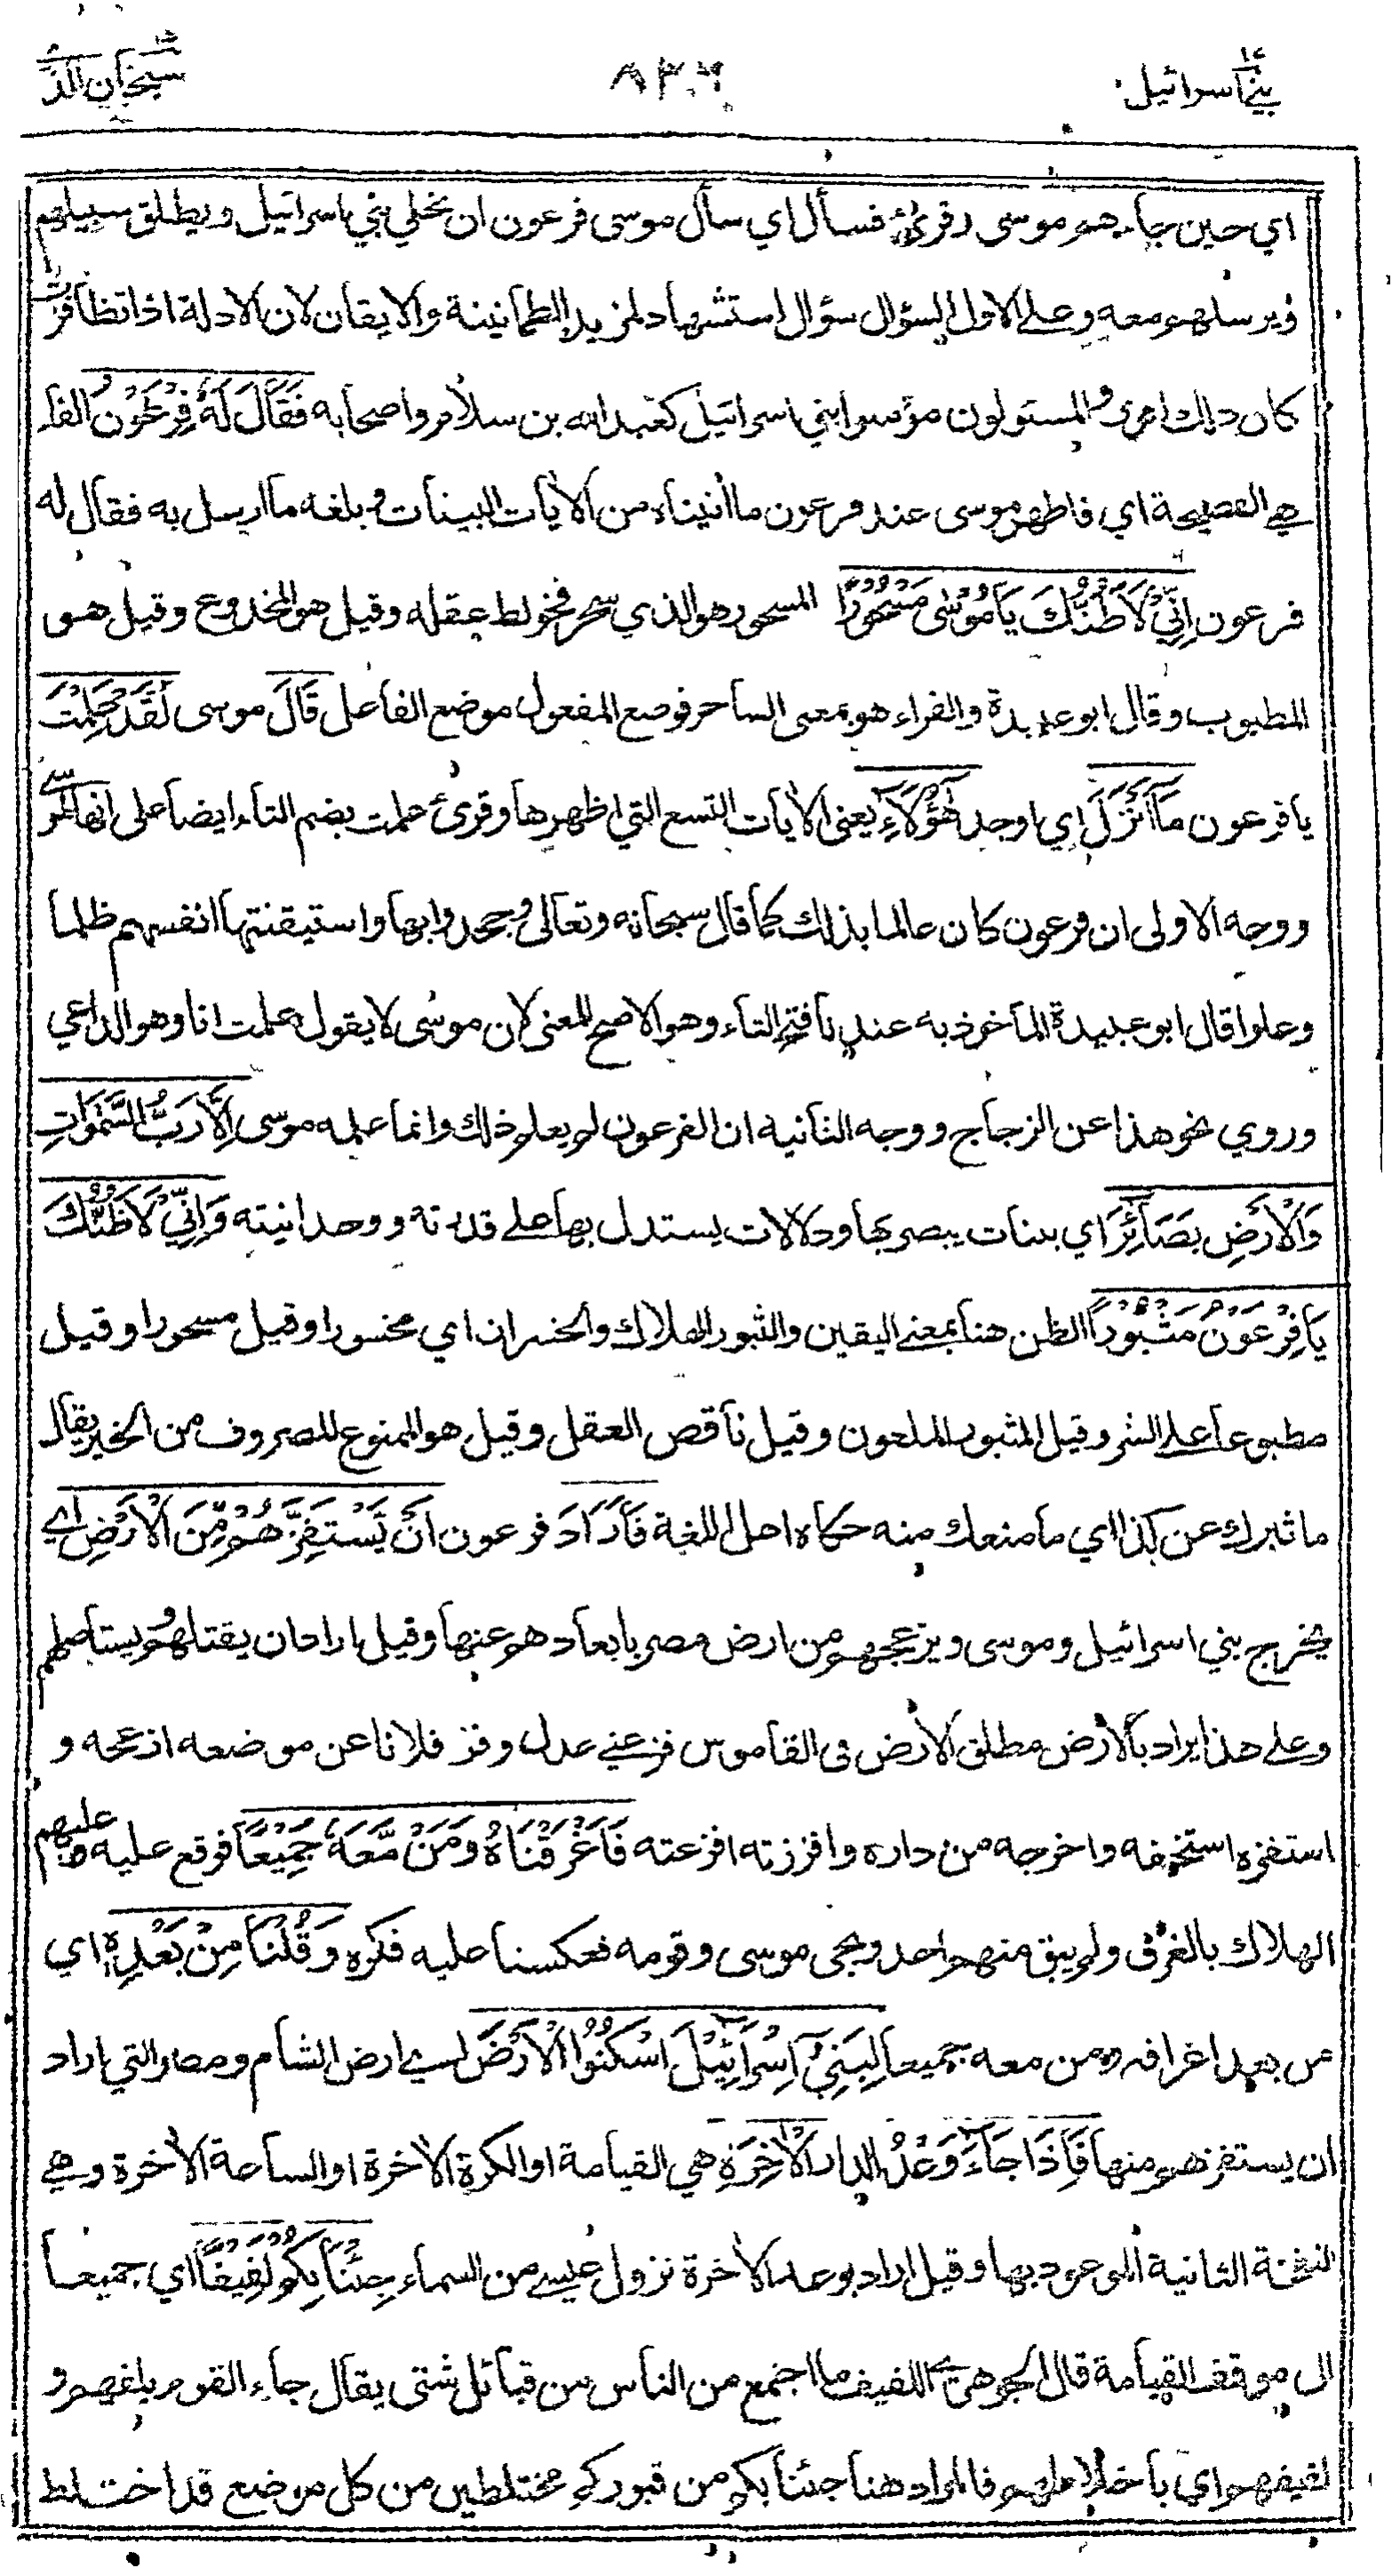 بني اسرائيل ١٧
٨٣٦
سبحان الذي ١٥
اي حين جاءهم موسى وقرئ فسأل اي سأل موسى فرعون ان يخلي بني اسرائيل ويطلق سبيلهم
ويرسلهم معه وعلى الاول السؤال سؤال استشهاد لمزيد الطمانينة والايقان لان الادلة اذا تظافرت
كان ذلك اقوى والمسئولون مؤمنوا بني اسرائيل كعبد الله بن سلام واصحابه فَقَالَ لَهُ فِرْعَوْنُ الفاء
هي الفصيحة اي فاظهر موسى عند فرعون ما اٰتيناه من الاٰيات البينات وبلغه ما ارسل به فقال له
فرعون اِنِّيْ لَاَظُنُّكَ يَا مُوْسٰى مَسْحُوْرًا المسحور هو الذي سحر فخولط عقله وقيل هو المخدوع وقيل هو
المطبوب وقال ابو عبيدة والفراء هو بمعنى الساحر فوضع المفعول موضع الفاعل قَالَ موسى لَقَدْ عَلِمْتَ
يا فرعون مَا اَنْزَلَ اي اوجد هٰؤُلَاءِ يعني الاٰيات التسع التي اظهرها وقرئ علمت بضم التاء ايضا على انها لموسى
ووجه الاولى ان فرعون كان عالما بذلك كما قال سبحانه وتعالى وجحدوا بها واستيقنتها انفسهم ظلما
وعلوا قال ابو عبيدة الماخوذ به عندنا فتح التاء وهو الاصح للمعنى لان موسى لا يقول علمت انا وهو الداعي
وروي نحو هذا عن الزجاج ووجه الثانية ان الفرعون لم يعلم ذلك وانما علمه موسى اِلَّا رَبُّ السَّمٰوَاتِ
وَالْاَرْضِ بَصَائِرَ اي بينات يبصر بها ودلالات يستدل بها على قدرته ووحدانيته وَاِنِّيْ لَاَظُنُّكَ
يَا فِرْعَوْنُ مَثْبُوْرًا الظن هنا بمعنى اليقين والثبور الهلاك والخسران اي مخسورا وقيل مسحورا وقيل
مطبوعا على الشر وقيل المثبور الملعون وقيل ناقص العقل وقيل هو الممنوع للصروف من الخير يقال
ما ثبرك عن كذا اي ما منعك منه حكاه اهل اللغة فَاَرَادَ فرعون اَنْ يَّسْتَفِزَّهُمْ مِّنَ الْاَرْضِ اي
يخرج بني اسرائيل وموسى ويزعجهم من ارض مصر بابعادهم عنها وقيل اراد ان يقتلهم ويستأصلهم
وعلى هذا يراد بالارض مطلق الارض في القاموس فز عني عدل وفز فلانا عن موضعه ازعجه و
استفزه استخفه واخرجه من داره وافززته افزعته فَاَغْرَقْنَاهُ وَمَنْ مَّعَهٗ جَمِيْعًا فوقع عليه وعليهم
الهلاك بالغرق ولم يبق منهم احد ونجى موسى وقومه فعكسنا عليه فكره وَقُلْنَا مِنْ بَعْدِهٖ اي
من بعد اغراقه ومن معه جميعا لِبَنِيْ اِسْرَائِيْلَ اسْكُنُوا الْاَرْضَ اي ارض الشام ومصر التي اراد
ان يستفزهم منها فَاِذَا جَاءَ وَعْدُ الدار الْاٰخِرَةِ هي القيامة او الكرة الاٰخرة او الساعة الاٰخرة وهي
النفخة الثانية الموعود بها وقيل اراد بوعد الاٰخرة نزول عيسى من السماء جِئْنَا بِكُمْ لَفِيْفًا اي جميعا
الى موقف القيامة قال الجوهري اللفيف ما اجتمع من الناس من قبائل شتى يقال جاء القوم بلفهم و
لفيفهم اي باخلاطهم فالمراد هنا جئنا بكم من قبوركم مختلطين من كل موضع قد اختلط